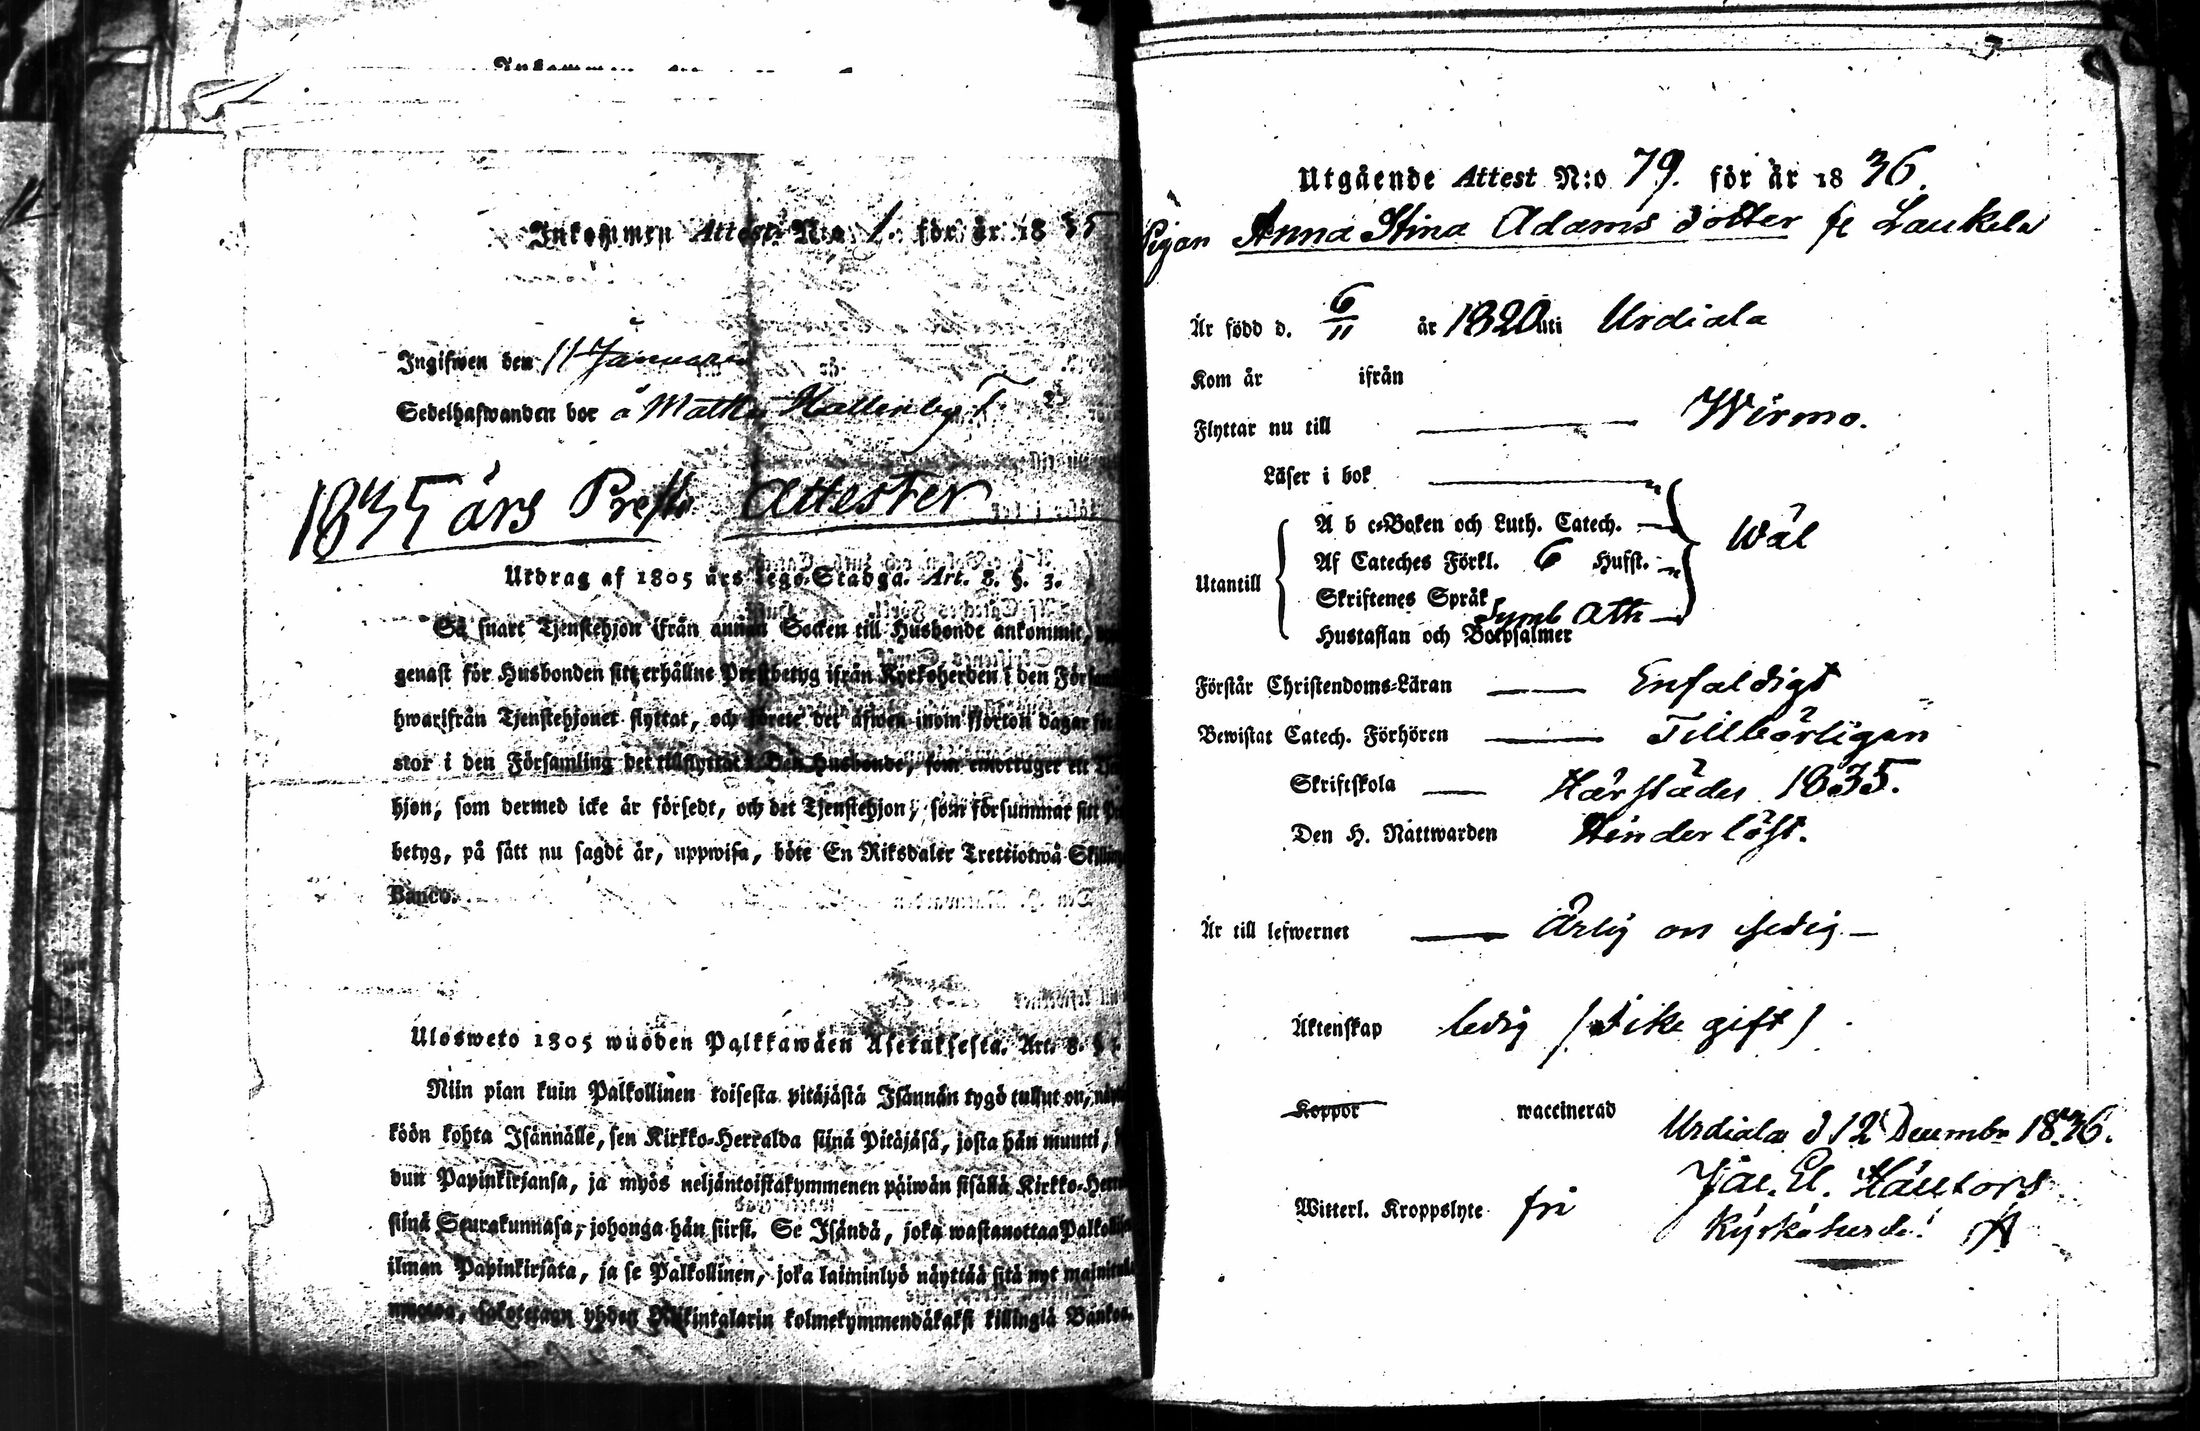 Inkommen Attest N:o 1. för år 1835
Ingifwen den 11 Januari
Sedelhafwanden bor å
1835 års Prest Attester
Utdrag af 1805 års Lego-Stadga. Art. 8. §. 3.
Så snart Tjenstehjon ifrån annan Socken till Husbonde ankommit,
genast för Husbonden sitt erhållne Prestbetyg ifrån Kyrkoherden i den
hwarifrån Tjenstehjonet flyttat, och förete det äfwen inom fjorton dagar för
stor i den Församling det tillflyttat. Den Husbonde, som emottager ett
hjon, som dermed icke är försedt, och det Tjenstehjon, som försummar sitt
betyg, på sätt nu sagdt är, uppwisa, böte En Riksdaler Trettiotwå
Banco.
Ulosweto 1805 wuoden Palkkawäen Asetuksesta. Art. 8. §
Niin pian kuin Palkollinen toisesta pitäjästä Isännän tygö tullut on,
köön kohta Isännälle, sen Kirkko-Herralda siinä Pitäjäsä, josta hän muutti,
dun Papinkirjansa, ja myös neljäntoistakymmenen päiwän sisällä
siinä Seurakunnasa, johonga hän siirst. Se Isändä, joka wastanottaa
ilman Papinkirjata, ja se Palkollinen, joka laiminlyö näyttää sitä nyt
muotoa, sakotetaan yhden Riikintalarin kolmekymmendäkaksi killingiä
Utgående Attest N:o 79. för år 1836.
Pigan Anna Stina Adams dotter fr Laukela
Är född d. 6/11 år 1820 uti Urdiala
Kom år ifrån
Flyttar nu till — Wirmo.
Läser i bok —
A b c-Boken och Luth. Catech. —
Af Cateches Förkl. 6 Hufst. — Wäl
Utantill
Skriftenes Språk
Symb Ath —
Hustaflan och Botpsalmer
Förstår Christendoms-Läran — Enfaldigt
Bewistat Catech. Förhören — Tillbörligen
Skriftskola — Härstädes 1835.
Den H. Nattwarden Hinderlöst.
Är till lefwernet — Ärlig och sedig —
Äktenskap ledig (icke gift)
Koppor waccinerad
Urdiala d 12 Decembr 1836.
Witterl. Kroppslyte fri
Kyrkoherde.